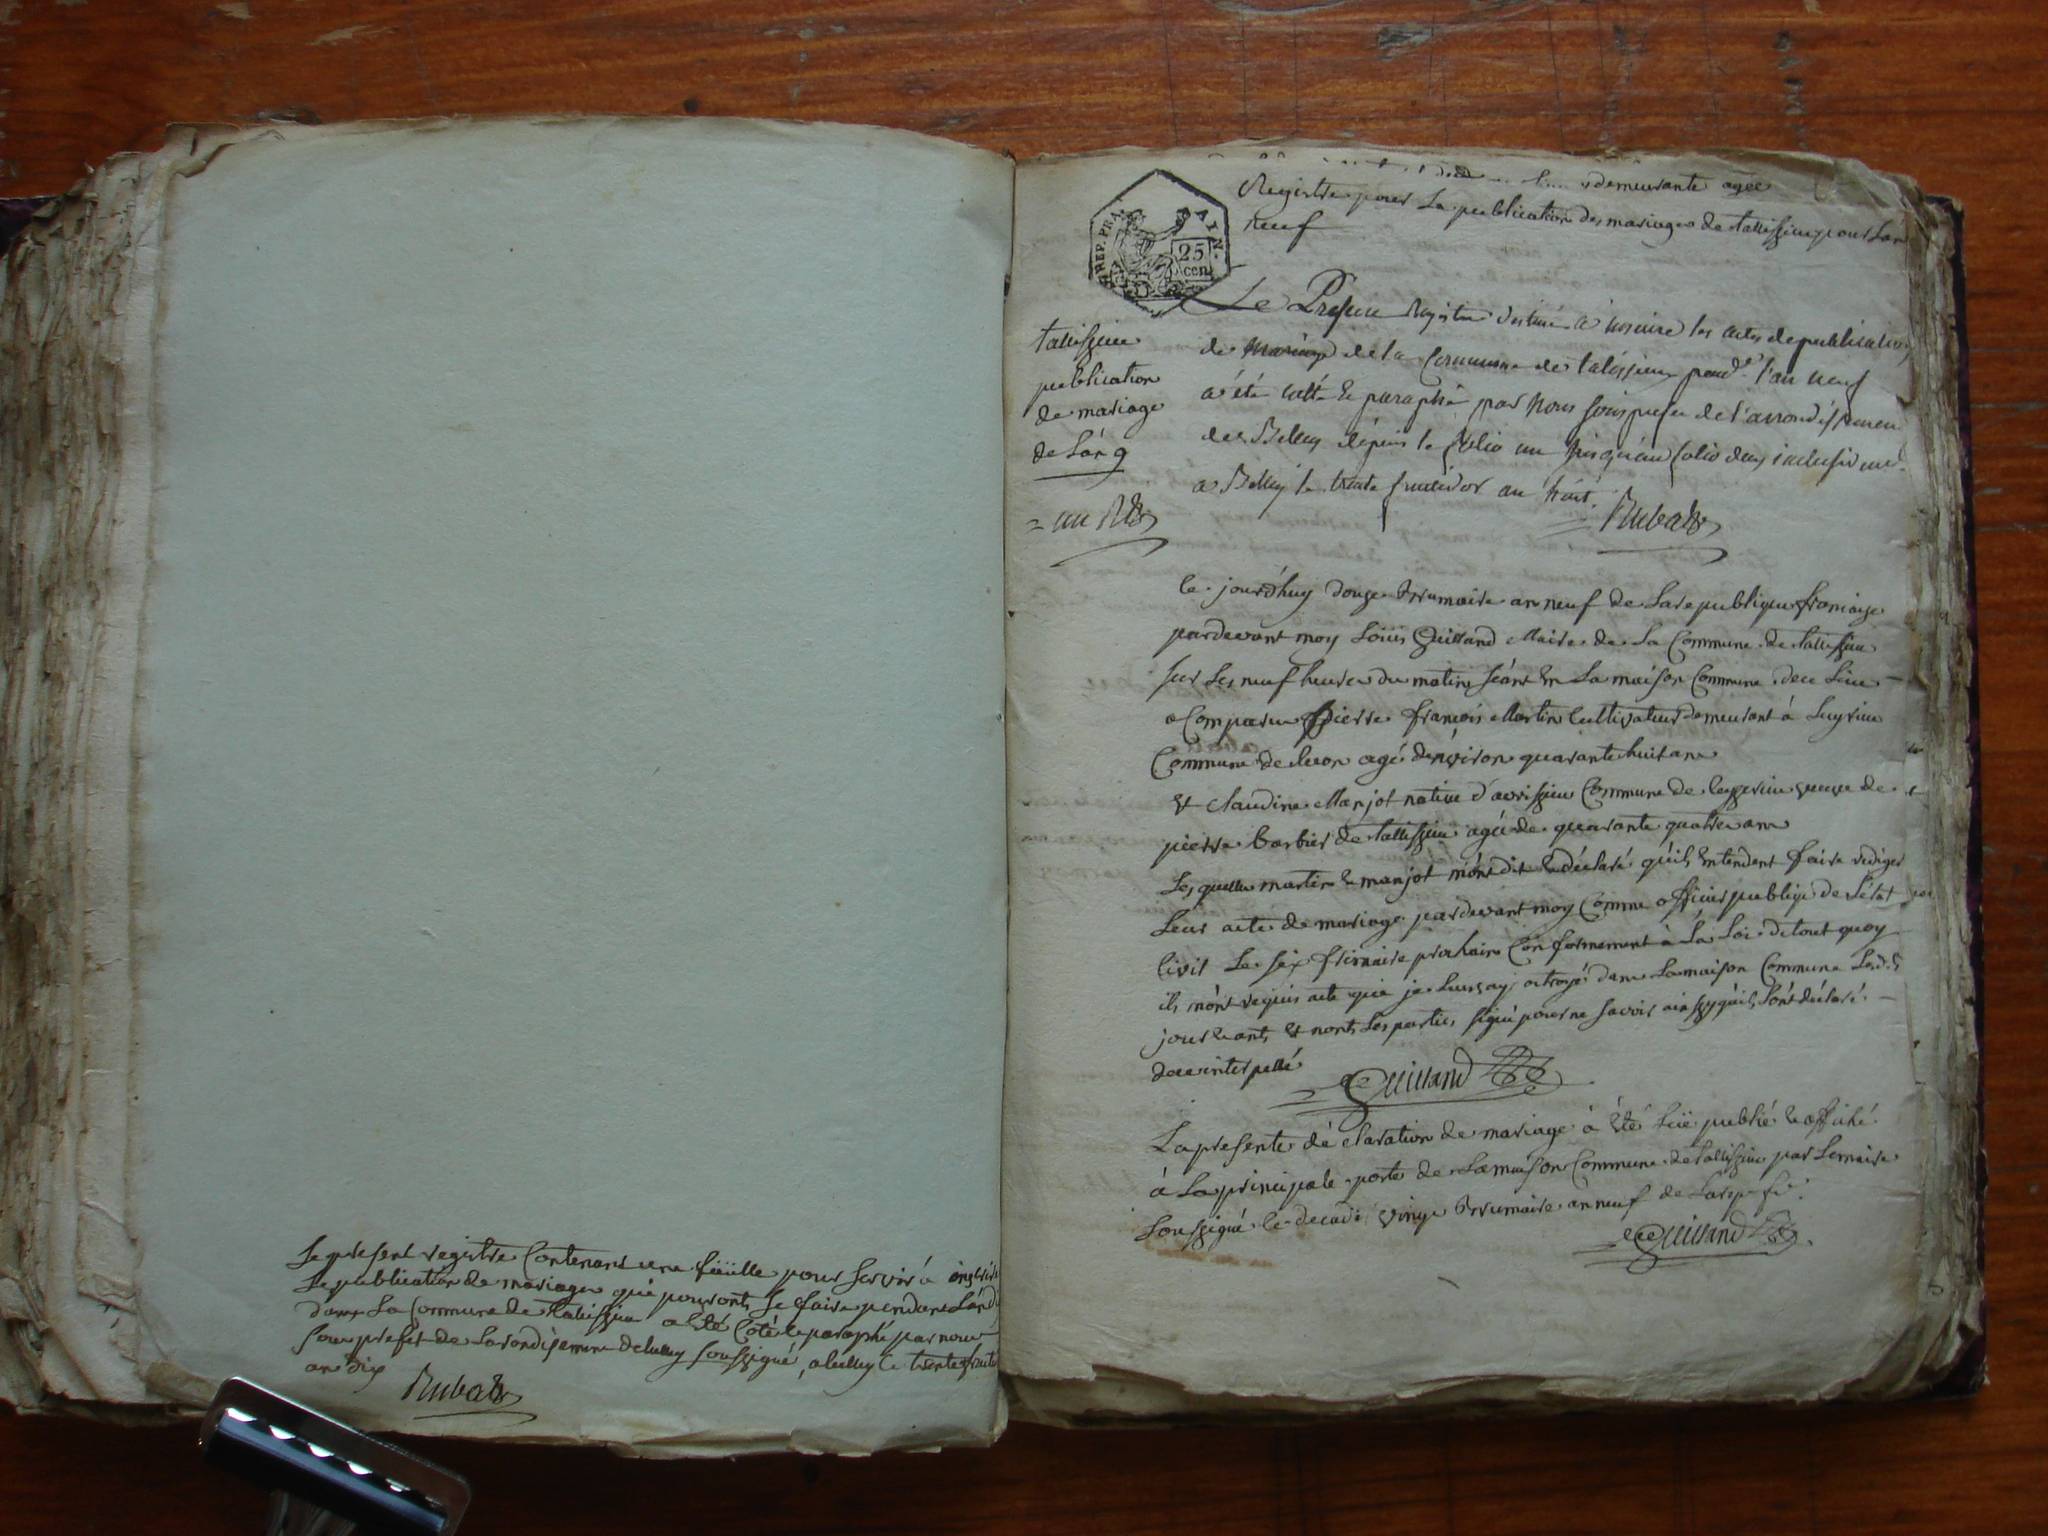 Le present registre Contenant une feüille pour servir à inscrire
Le publication de mariages qui pouront se faire pendant Lan dix
dans La Commune de tallissieu a été Coté & paraphé par nous
sous prefet de Larondissement de belley soussigné, a belley le trente fructidor
an dix
Rubat
demeurante agée
Registre pour La publication des mariages de tallissieu pour Lan
neuf
REP. FRA.
25
cen
tallissieu
publication
de mariage
de L'an 9
un
Le Present Registre destiné a inscrire les actes de publication
de mariage de la Commune de talissieu pend.t l'an neuf
a été cotté & paraphé par Nous souspréfet de l'arrondissement
de Belley depuis le folio un jusqu'au folio deux inclusivem.t
a Belley le trente fructidor an huit.
Rubat
le jourd'huy douze Brumaire an neuf de La republique française
pardevant moy Loüis Guilland Maire de La Commune de tallissieu
sur Les neuf heures du matin séant en La maison Commune du Lieu
a Comparu Pierre françois Martin Cultivateur demeurant à Luyrieu
Commune de beon agé d'environ quarante huit ans
Et Claudine Manjot native d'avrissieu Commune de veuve de
pierre barbier de tallissieu agée de quarante quatre ans
Lesquels martin & manjot m'ont dit & déclaré qu'ils entendent faire rediger
Leur acte de mariage pardevant moy Comme officier publique de L'état
Civil Le six frimaire prochain Conformement à La Loi. de tout quoy
ils m'ont requis acte que je Leurs ay octroyé dans La maison Commune Lesd.s
jour & ant, & n'ont Les parties signé pour ne savoir ainssy qu'ils L'ont déclaré
de ce interpellé
Guilland
La presente déclaration de mariage à été Luë publié & affiché
à La principale porte de La maison Commune de tallissieu par Le maire
soussigné le decadi vingt Brumaire an neuf de La rep. fr.
Guilland